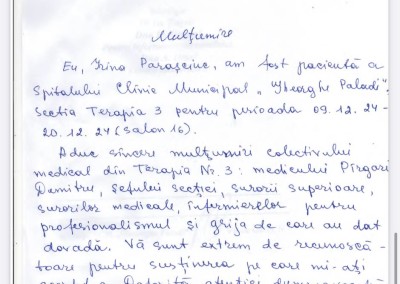 Mulțumire
Eu, Irina Parasciuc, am fost pacientă a
Spitalului Clinic Municipal „Gheorghe Paladi",
Secția Terapia 3 pentru perioada 09.12.24-
20.12.24 (salon 16).
Aduc sincere mulțumiri colectivului
medical din Terapia Nr. 3: medicului Pîrgari
Dumitru, șefului secției, surorii superioare,
surorilor medicale, infermierelor pentru
profesionalismul și grija de care au dat
dovadă. Vă sunt extrem de recunoscă-
toare pentru susținerea pe care mi-ați